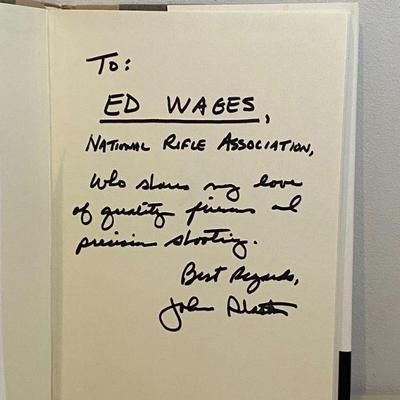 To:
ED WAGES,
NATIONAL RIFLE ASSOCIATION,
Who shares my love
of quality firearms and
precision shooting.
Best Regards,
John